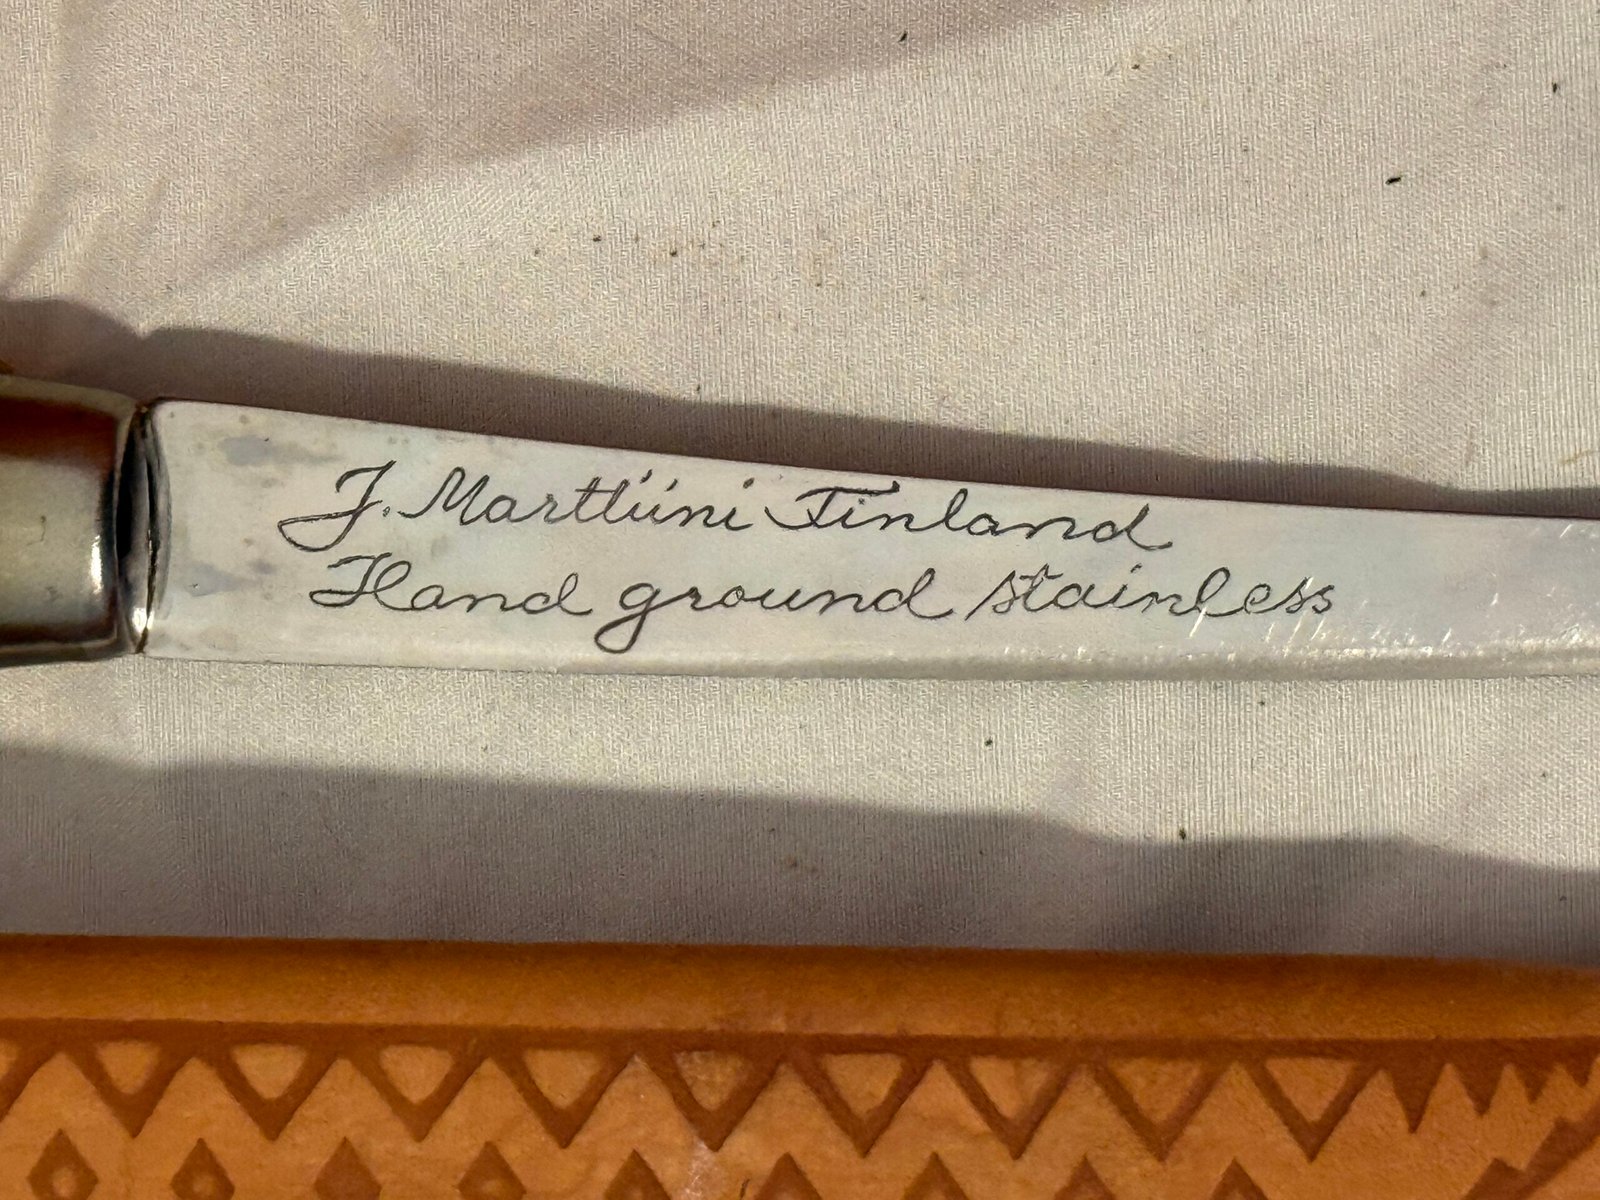 J. Marttiini Finland
Hand ground stainless